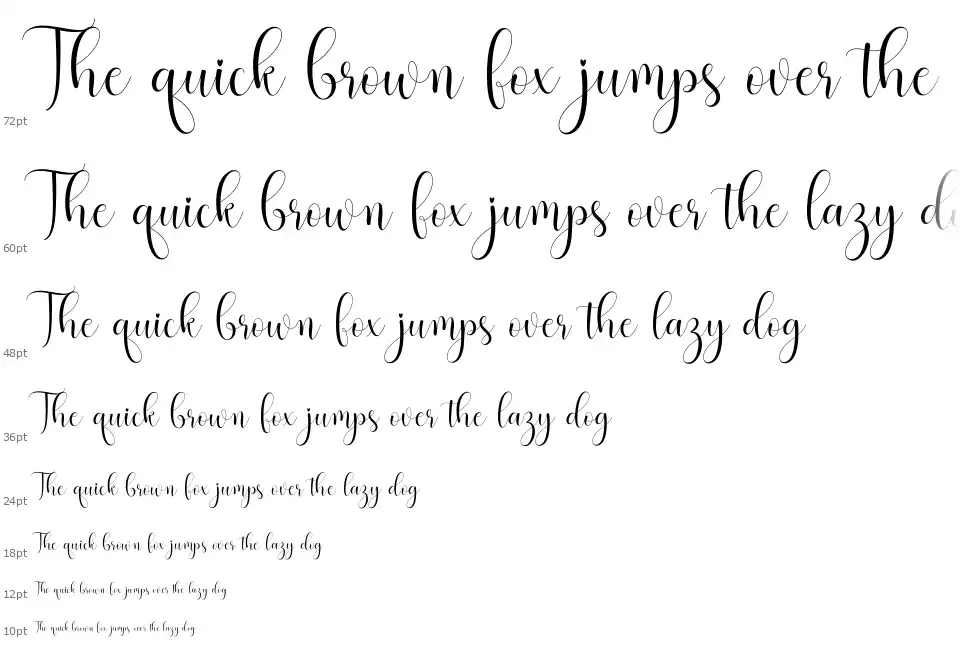 The quick brown fox jumps over the
72pt
The quick brown fox jumps over the lazy
60pt
The quick brown fox jumps over the lazy dog
48pt
The quick brown fox jumps over the lazy dog
36pt
The quick brown fox jumps over the lazy dog
24pt
The quick brown fox jumps over the lazy dog
18pt
The quick brown fox jumps over the lazy dog
12pt
The quick brown fox jumps over the lazy dog
10pt